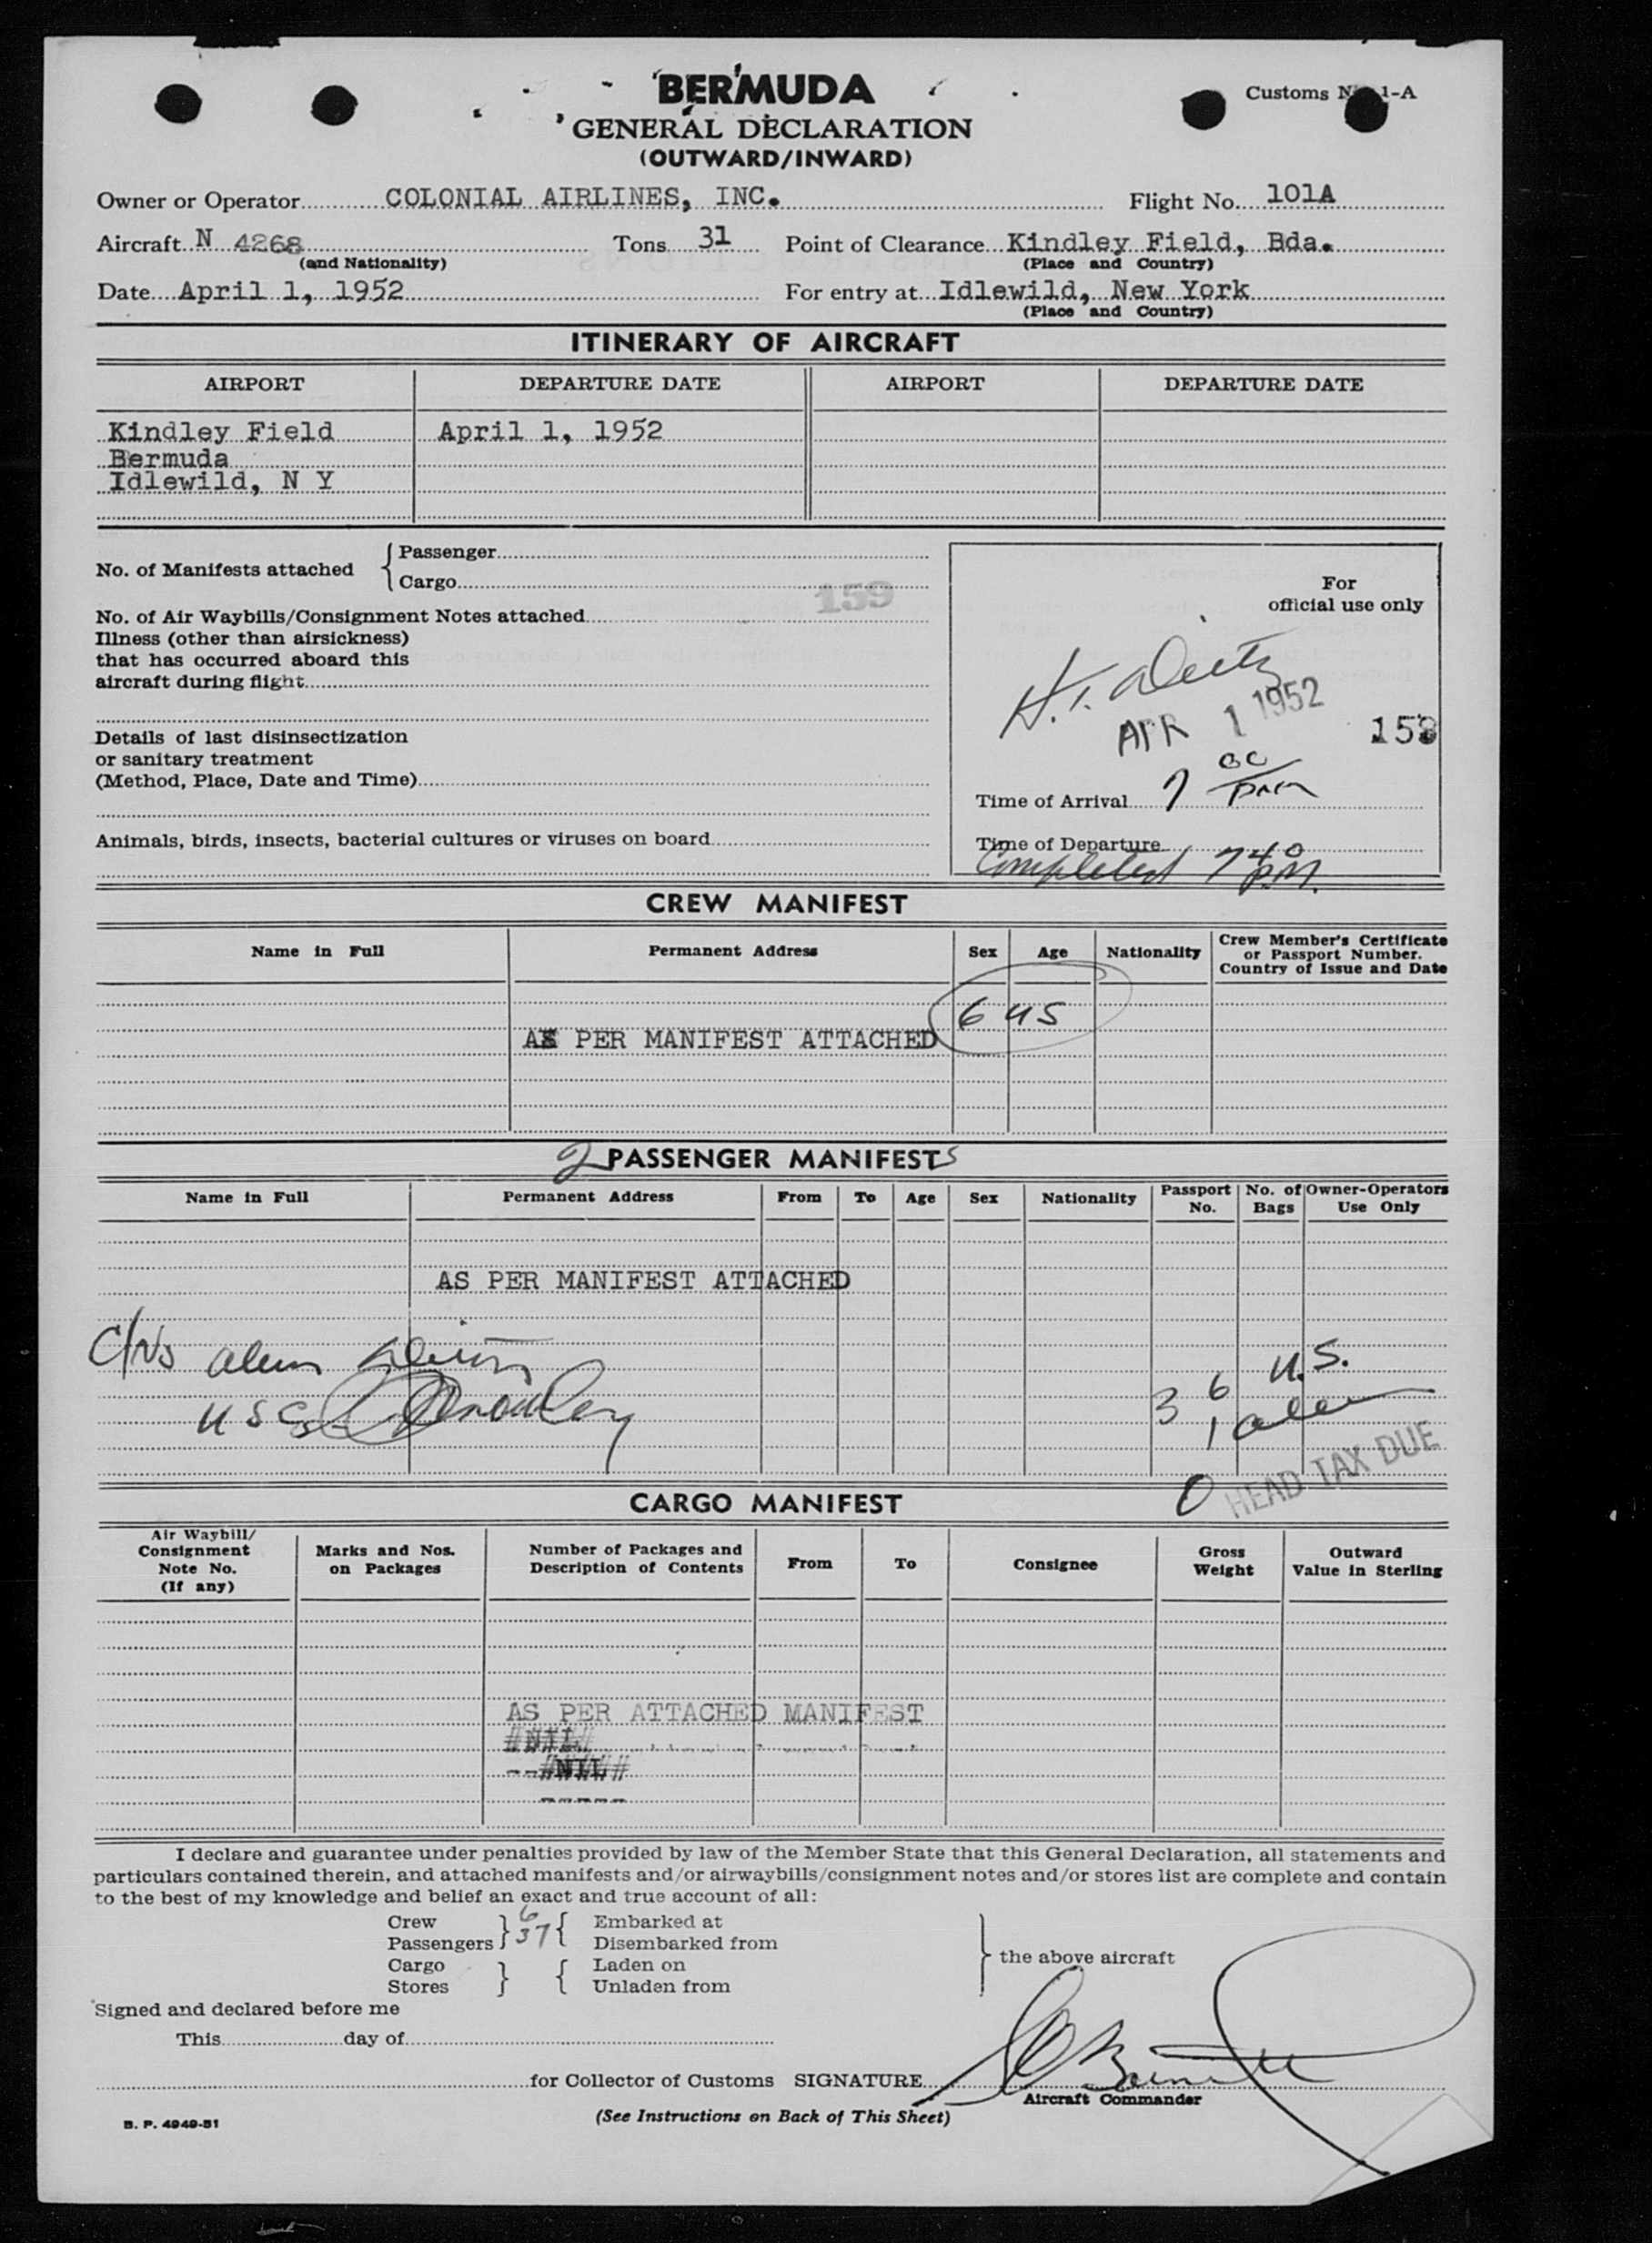 BERMUDA
Customs No. 1-A
GENERAL DECLARATION
(OUTWARD/INWARD)
Owner or Operator COLONIAL AIRLINES, INC. Flight No. 101A
Aircraft N 4268 Tons 31 Point of Clearance Kindley Field, Bda.
(and Nationality) (Place and Country)
Date April 1, 1952 For entry at Idlewild, New York
(Place and Country)
ITINERARY OF AIRCRAFT
AIRPORT DEPARTURE DATE AIRPORT DEPARTURE DATE
Kindley Field April 1, 1952
Bermuda
Idlewild, N Y
No. of Manifests attached { Passenger
Cargo
159
For
official use only
No. of Air Waybills/Consignment Notes attached
Illness (other than airsickness)
that has occurred aboard this
aircraft during flight
APR 1 1952
Details of last disinsectization
or sanitary treatment
(Method, Place, Date and Time)
Time of Arrival 7 00 pm
Animals, birds, insects, bacterial cultures or viruses on board
Time of Departure
Completed 7 40 PM.
CREW MANIFEST
Name in Full Permanent Address Sex Age Nationality Crew Member's Certificate or Passport Number. Country of Issue and Date
6 US
AS PER MANIFEST ATTACHED
2 PASSENGER MANIFESTS
Name in Full Permanent Address From To Age Sex Nationality Passport No. No. of Bags Owner-Operators Use Only
AS PER MANIFEST ATTACHED
alien
U.S.
USC
36
1 alien
0 HEAD TAX DUE
CARGO MANIFEST
Air Waybill/ Consignment Note No. (If any) Marks and Nos. on Packages Number of Packages and Description of Contents From To Consignee Gross Weight Outward Value in Sterling
AS PER ATTACHED MANIFEST
#NIL#
--#NIL#
-----
I declare and guarantee under penalties provided by law of the Member State that this General Declaration, all statements and
particulars contained therein, and attached manifests and/or airwaybills/consignment notes and/or stores list are complete and contain
to the best of my knowledge and belief an exact and true account of all:
Crew } 6 { Embarked at
Passengers } 37 { Disembarked from
the above aircraft
Cargo } { Laden on
Stores } { Unladen from
Signed and declared before me
This day of
for Collector of Customs SIGNATURE
Aircraft Commander
B. P. 4949-51
(See Instructions on Back of This Sheet)